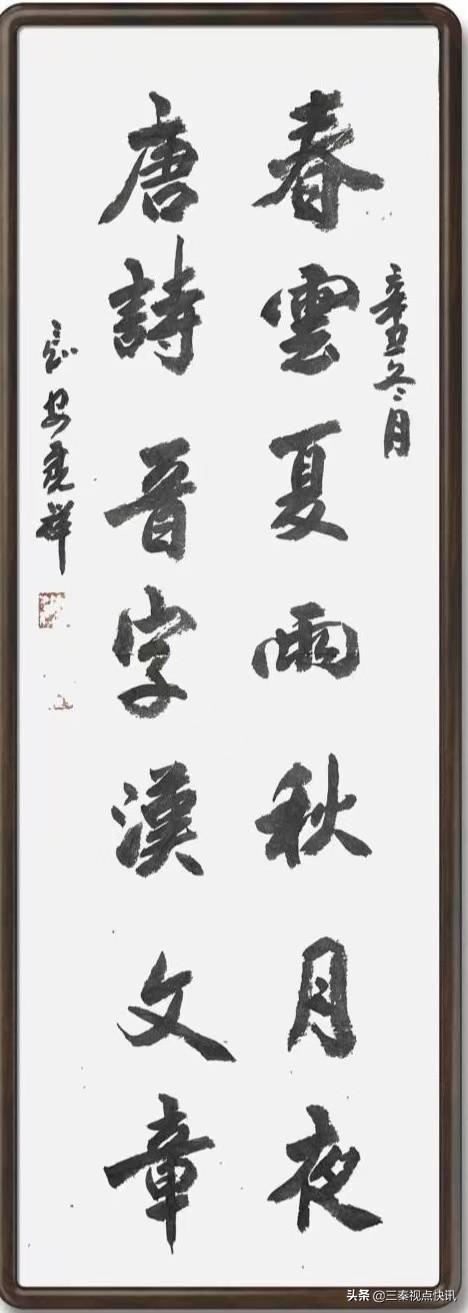 辛丑冬月
春雲夏雨秋月夜
唐詩晉字漢文章
头条 @三秦视点快讯